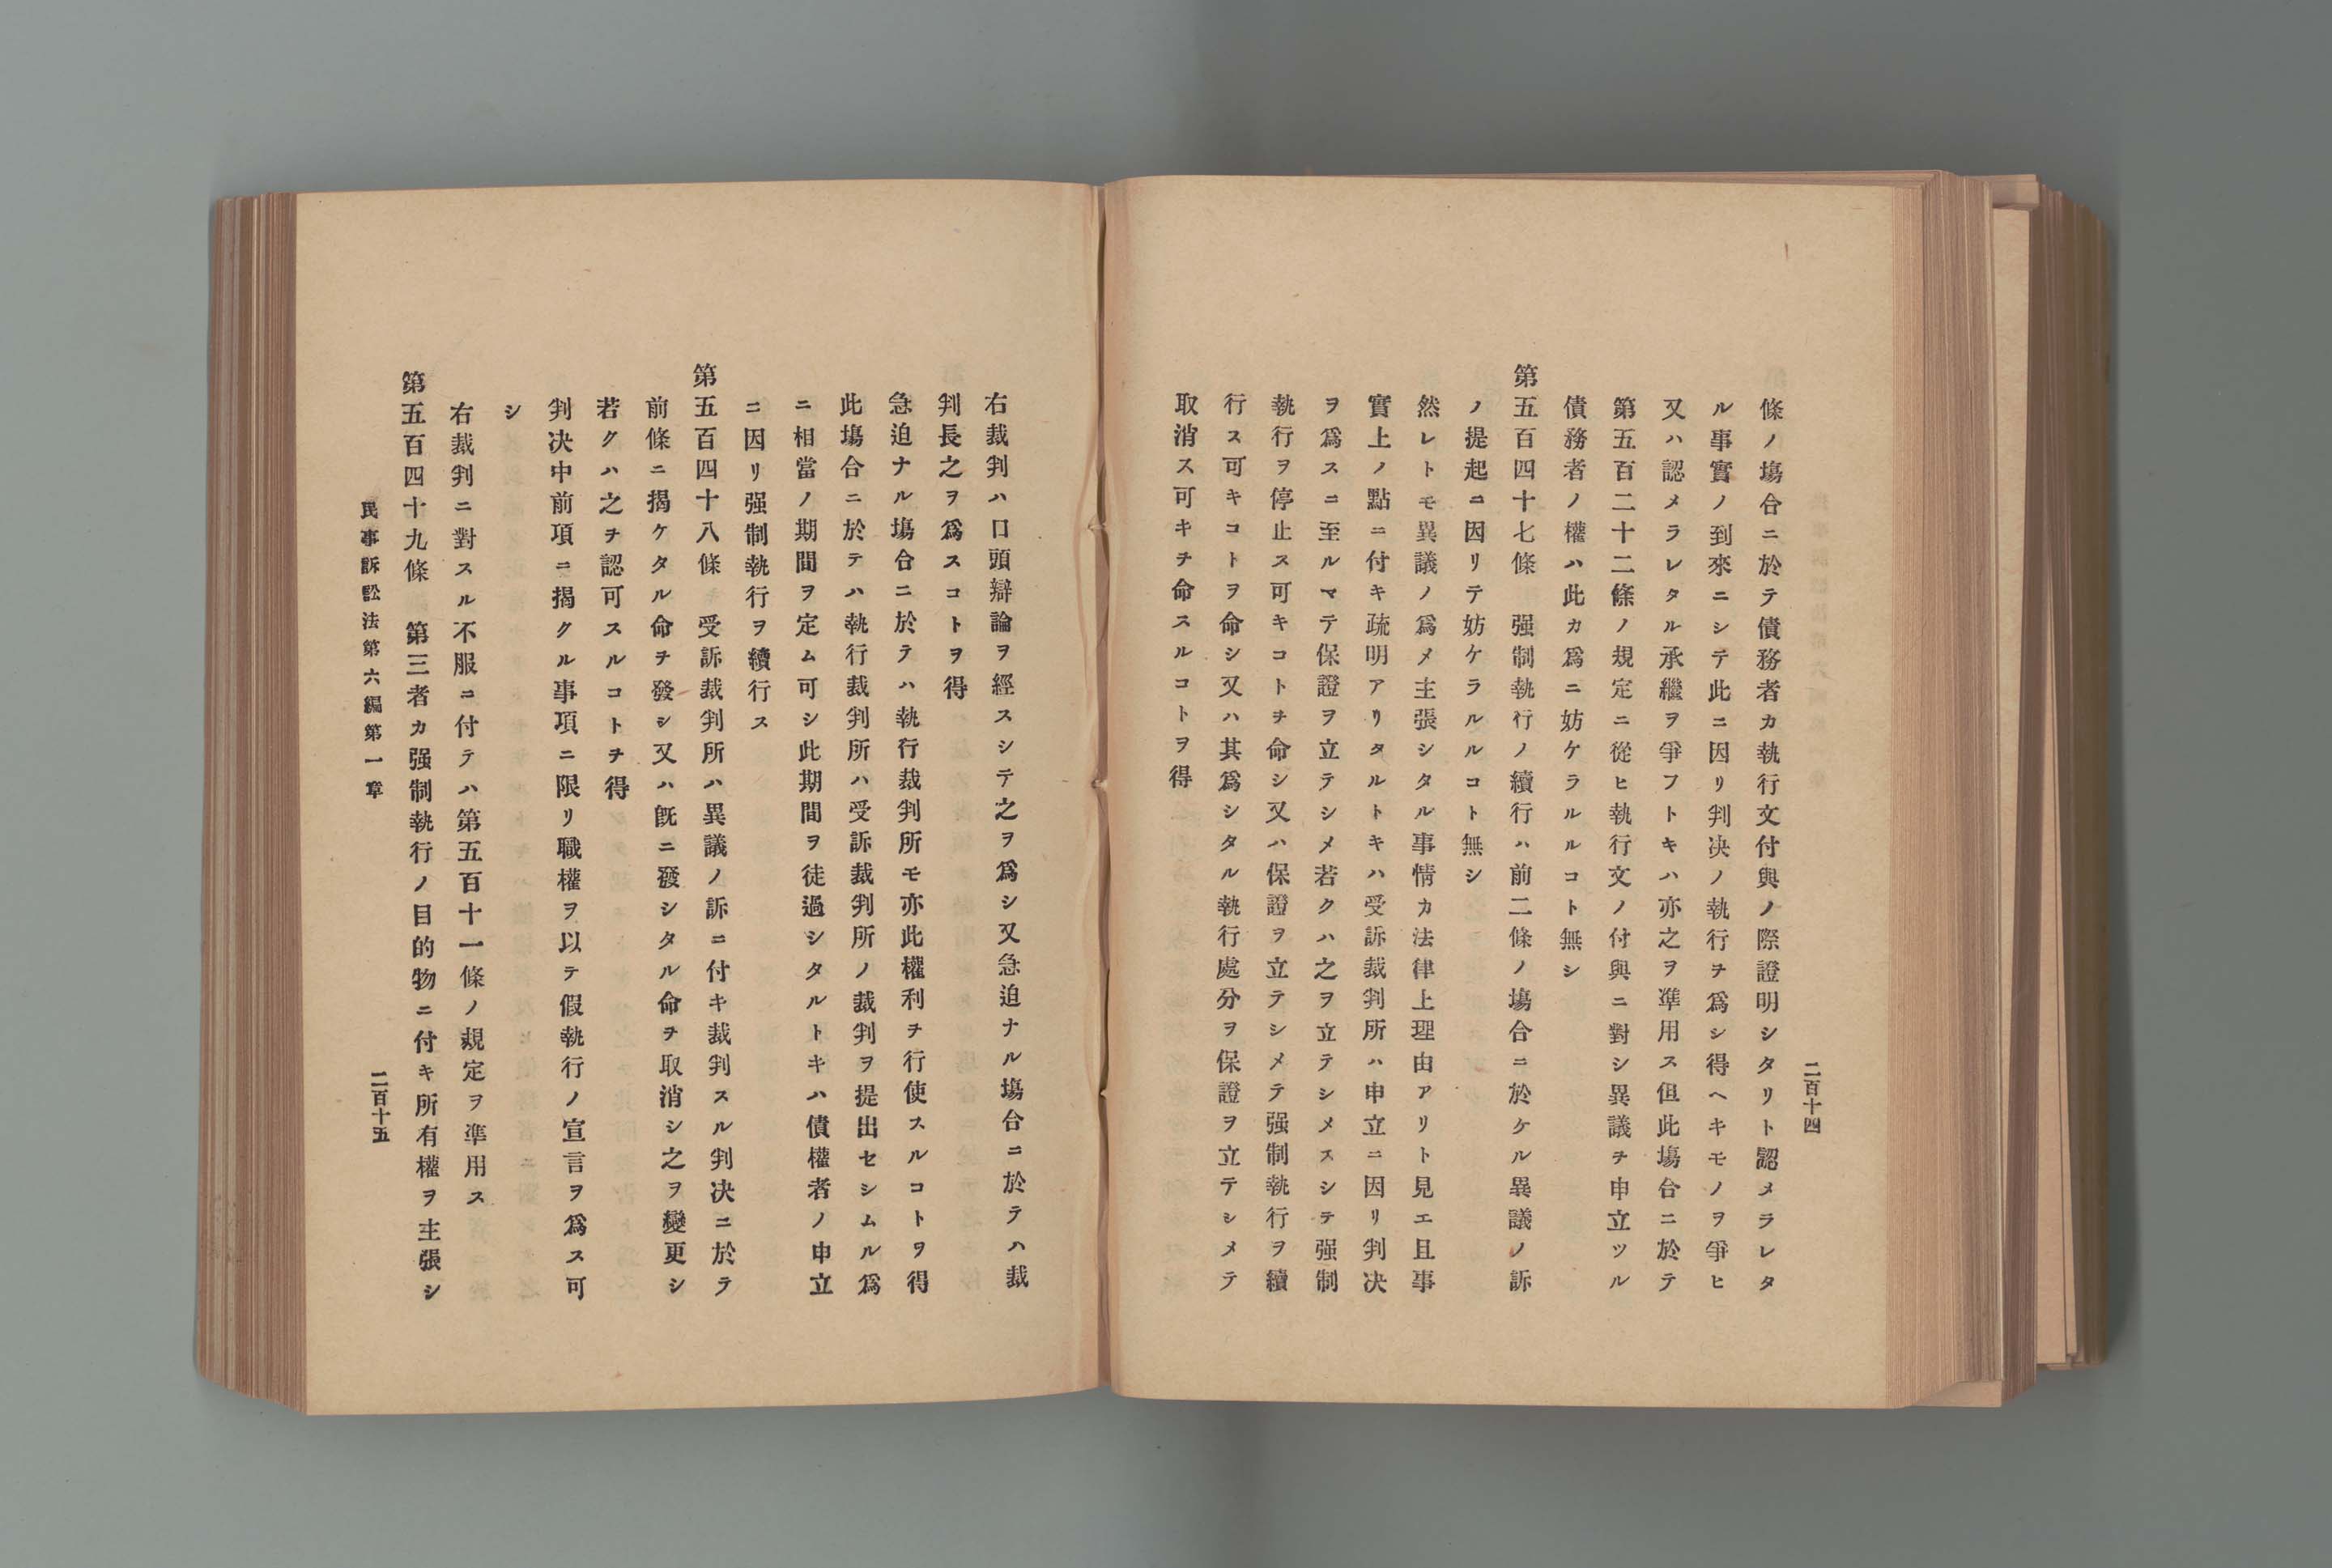 二百十四
條ノ塲合ニ於テ債務者カ執行文付與ノ際證明シタリト認メラレタ
ル事實ノ到來ニシテ此ニ因リ判决ノ執行ヲ爲シ得ヘキモノヲ爭ヒ
又ハ認メラレタル承繼ヲ爭フトキハ亦之ヲ準用ス但此塲合ニ於テ
第五百二十二條ノ規定ニ從ヒ執行文ノ付與ニ對シ異議ヲ申立ツル
債務者ノ權ハ此カ爲ニ妨ケラルルコト無シ
第五百四十七條　强制執行ノ續行ハ前二條ノ塲合ニ於ケル異議ノ訴
ノ提起ニ因リテ妨ケラルルコト無シ
然レトモ異議ノ爲メ主張シタル事情カ法律上理由アリト見エ且事
實上ノ點ニ付キ疏明アリタルトキハ受訴裁判所ハ申立ニ因リ判决
ヲ爲スニ至ルマテ保證ヲ立テシメ若クハ之ヲ立テシメスシテ强制
執行ヲ停止ス可キコトヲ命シ又ハ保證ヲ立テシメテ强制執行ヲ續
行ス可キコトヲ命シ又ハ其爲シタル執行處分ヲ保證ヲ立テシメテ
取消ス可キヲ命スルコトヲ得
右裁判ハ口頭辯論ヲ經スシテ之ヲ爲シ又急迫ナル塲合ニ於テハ裁
判長之ヲ爲スコトヲ得
急迫ナル塲合ニ於テハ執行裁判所モ亦此權利ヲ行使スルコトヲ得
此塲合ニ於テハ執行裁判所ハ受訴裁判所ノ裁判ヲ提出セシムル爲
ニ相當ノ期間ヲ定ム可シ此期間ヲ徒過シタルトキハ債權者ノ申立
ニ因リ强制執行ヲ續行ス
第五百四十八條　受訴裁判所ハ異議ノ訴ニ付キ裁判スル判决ニ於テ
前條ニ揭ケタル命ヲ發シ又ハ既ニ發シタル命ヲ取消シ之ヲ變更シ
若クハ之ヲ認可スルコトヲ得
判决中前項ニ揭クル事項ニ限リ職權ヲ以テ假執行ノ宣言ヲ爲ス可
シ
右裁判ニ對スル不服ニ付テハ第五百十一條ノ規定ヲ準用ス
第五百四十九條　第三者カ强制執行ノ目的物ニ付キ所有權ヲ主張シ
民事訴訟法第六編第一章
二百十五